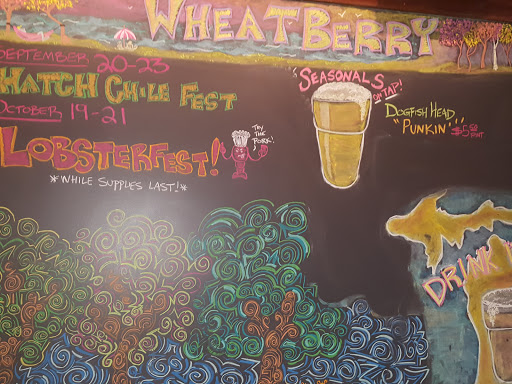 WHEATBERRY
SEPTEMBER 20-23
HATCH CHILE FEST
OCTOBER 19-21
LOBSTERFEST!
*WHILE SUPPLIES LAST!*
TRY
THE
PORK!
SEASONALS
ON TAP!
DOGFISH HEAD
"PUNKIN'"
$5.50
PINT
DRINK